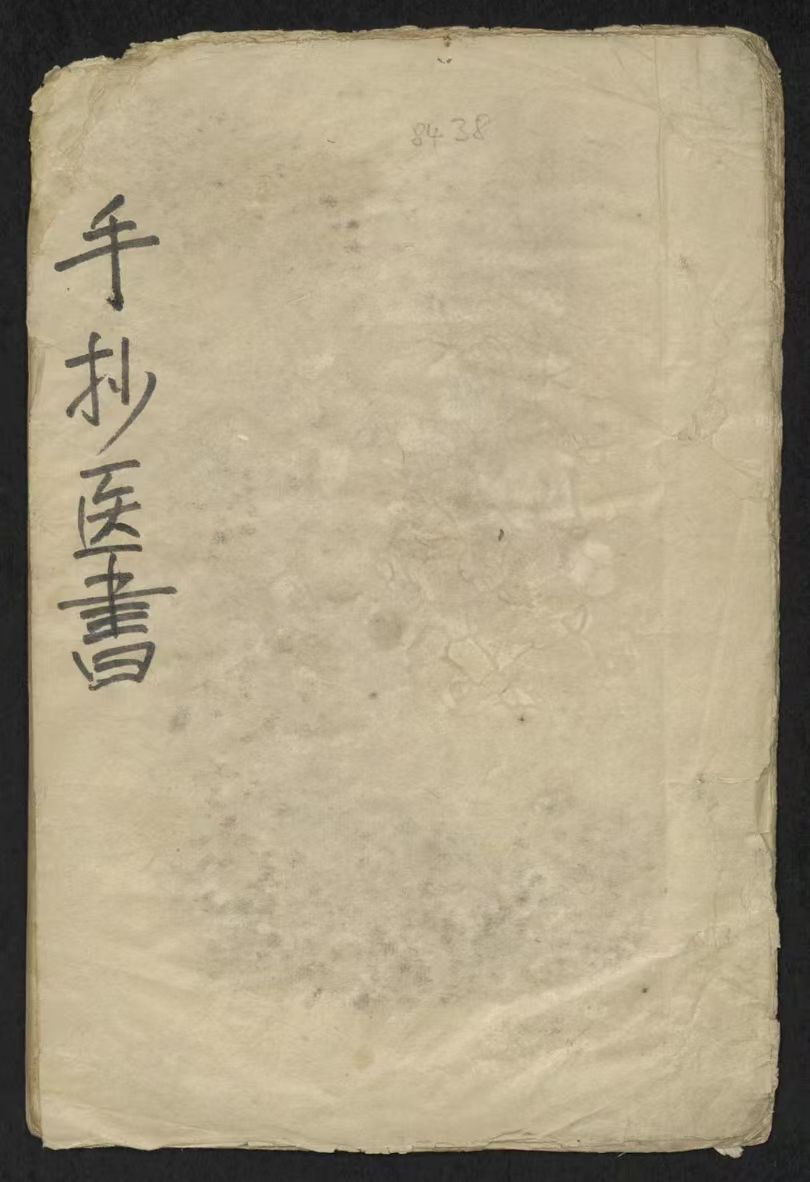 8438
手抄医書